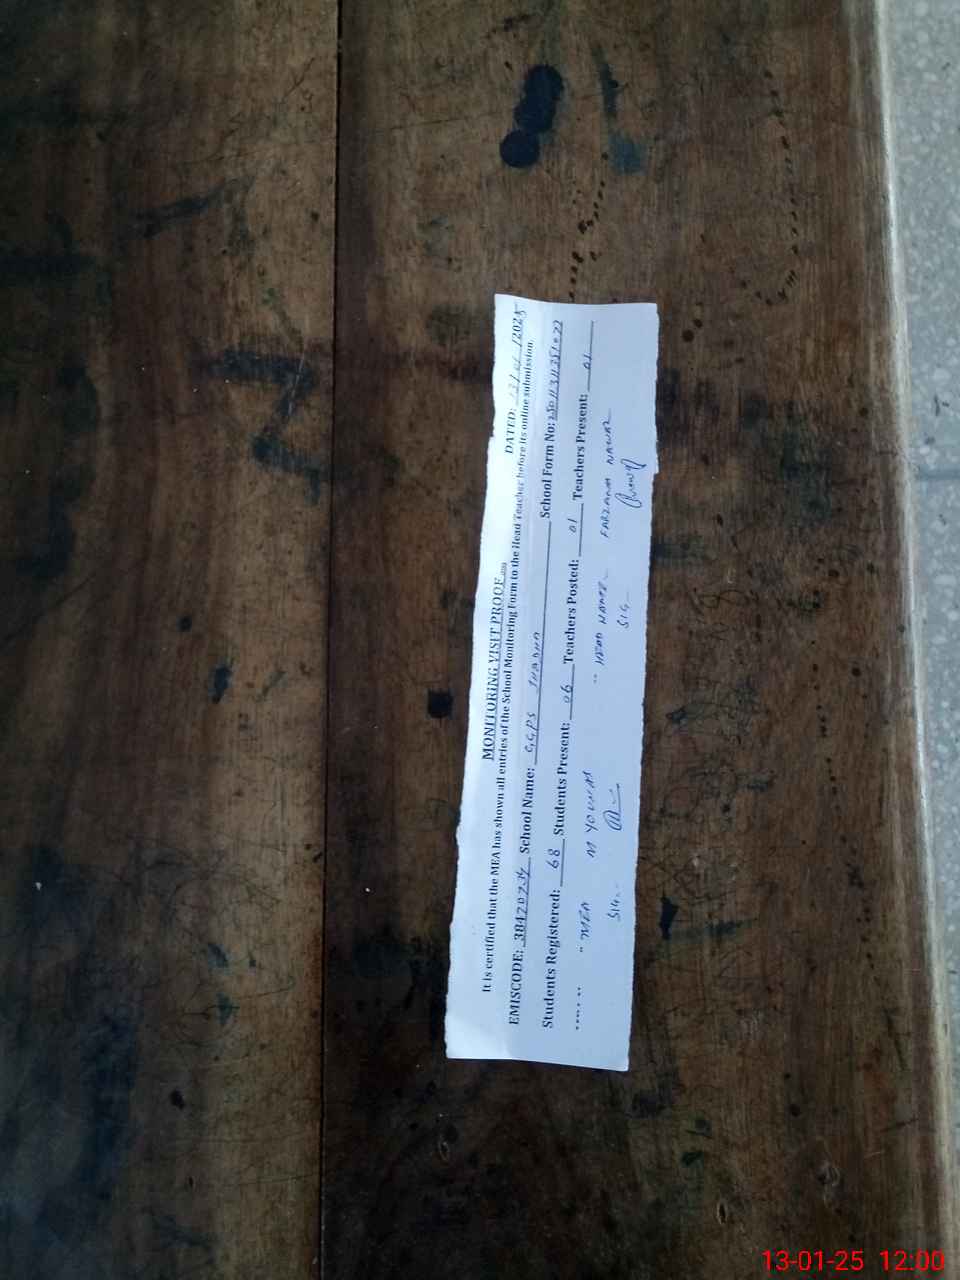 MONITORING VISIT PROOF
DATED: 13/01/2025
It is certified that the MEA has shown all entries of the School Monitoring Form to the Head Teacher before its online submission.
EMISCODE: 38420734 School Name: GGPS School Form No:
Students Registered: 68 Students Present: 06 Teachers Posted: 01 Teachers Present: 01
MEA M YOUNAS HEAD NAME - FARZANA NAWAZ
SIG- SIG-
13-01-25 12:00